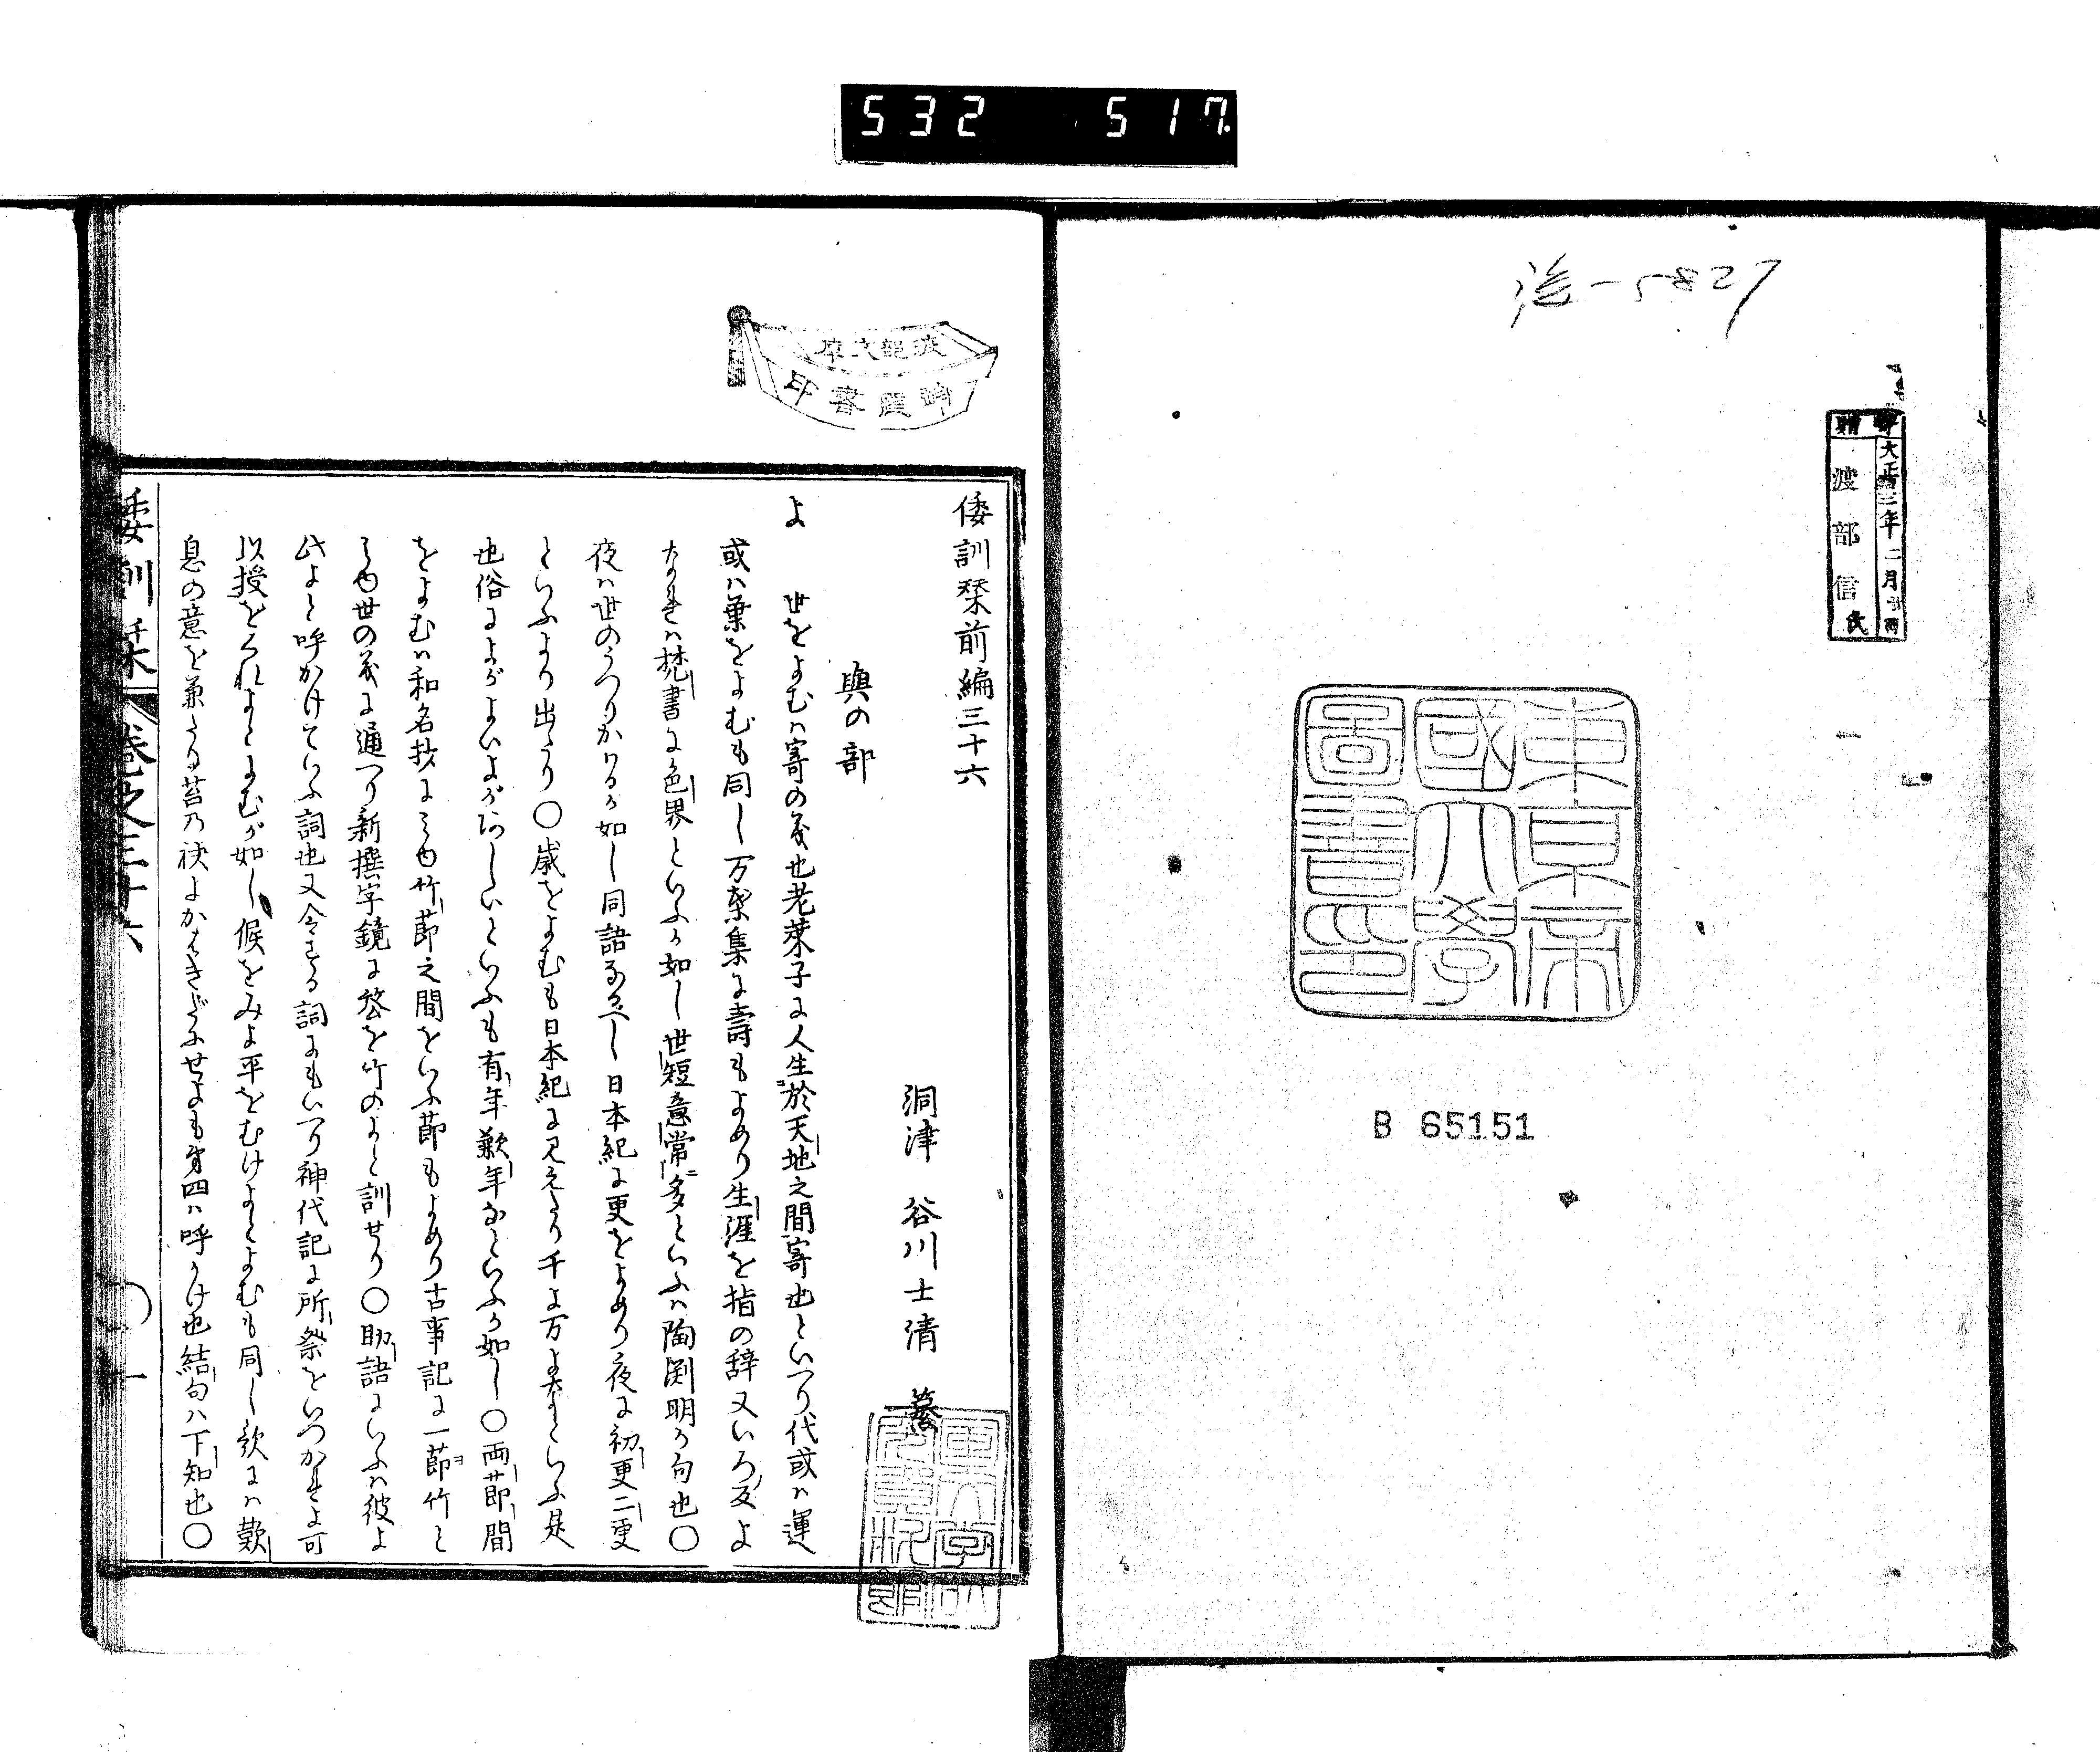 532 517
洽-5827
寄贈
大正三年二月
渡部信氏
東京帝
國大學
圖書印
B 65151
倭訓栞前編三十六
洞津 谷川士清 纂
與の部
よ 世をよむハ寄の義也老莱子に人生於天地之間寄也といへり代或ハ運
或ハ葉をよむも同し万葉集に壽もよめり生涯を指の辞又いろ反よ
なれハ梵書に色界といふか如し世短意常多といふハ陶渕明か句也〇
夜ハ世のうつりかはるか如し同語なるへし日本紀に更をよめり夜に初更二更
といふより出たり〇歳をよむも日本紀に見えたり千よ万よなといふ是
也俗によがよいよがわしいといふも有年歉年なといふか如し〇両節間
をよむハ和名抄にみゆ竹節之間をいふ節もよめり古事記に一節竹と
みゆ世の義に通へり新撰字鏡に答を竹のよと訓せり〇助語にいふハ彼よ
此よと呼かけていふ詞也又令する詞にもいへり神代記に所祭をいつかれよ可
以授をくれよとよむが如し候をみよ平をむけよとよむも同し歌にハ歎
息の意を兼たり苔乃袂よかはきだにせよも第四ハ呼かけ也結句ハ下知也〇
倭訓栞 巻之三十六 〇一